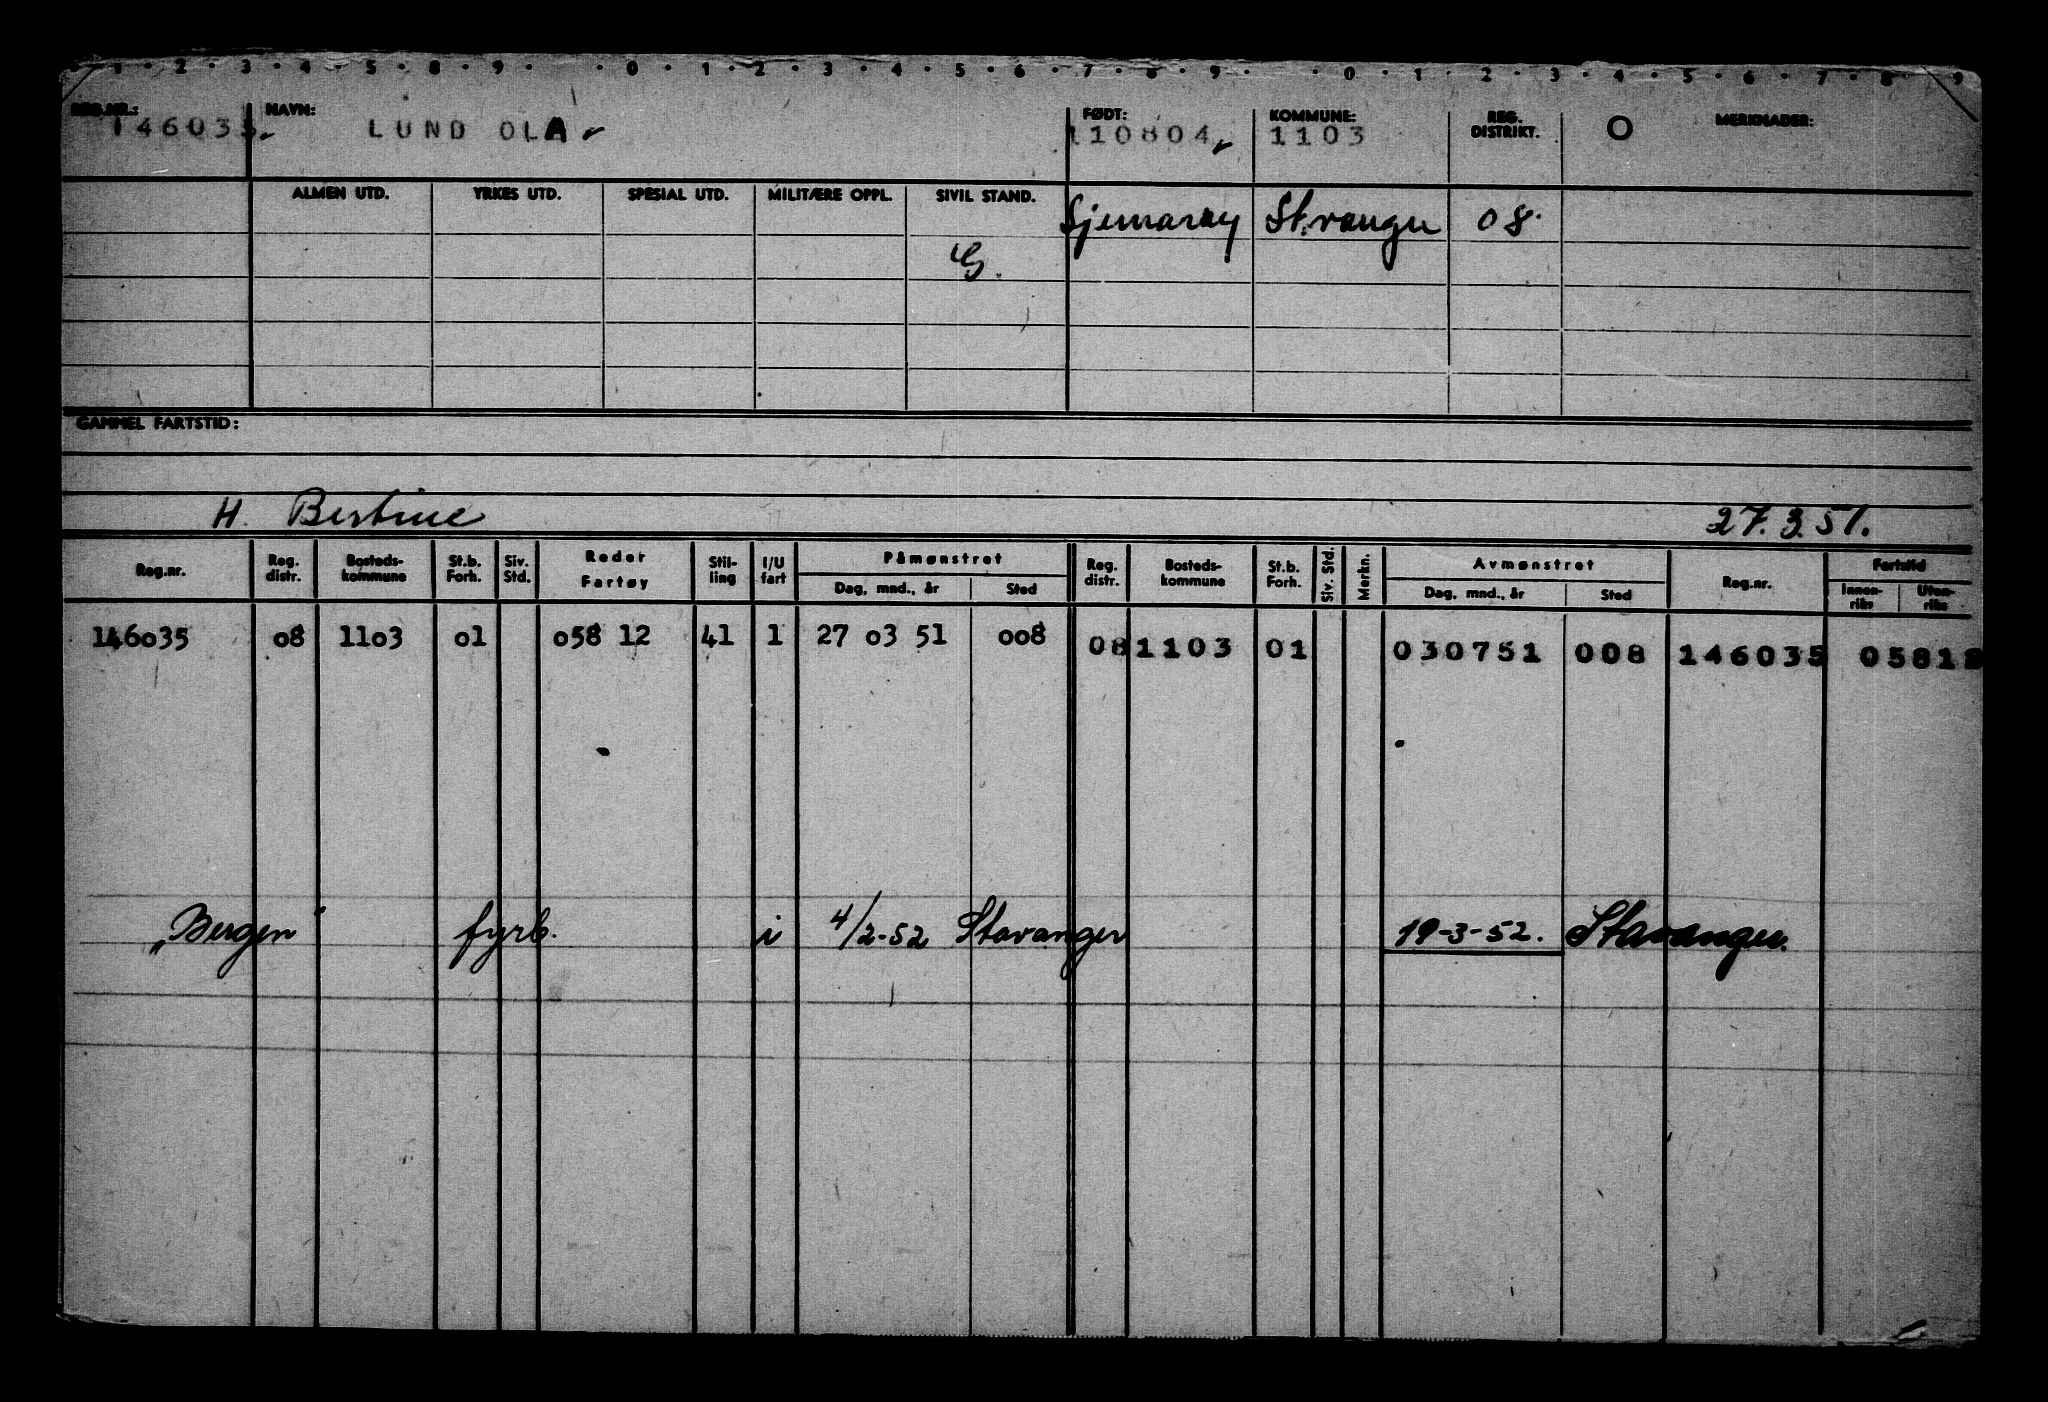 1 2 3 4 5 8 9 0 1 2 3 4 5 6 7 8 9 0 1 2 3 4 5 6 7 8 9
REG.NR.: NAVN: FØDT: KOMMUNE: REG. DISTRIKT. O MERKNADER:
146035 LUND OLA 110804 1103
ALMEN UTD. YRKES UTD. SPESIAL UTD. MILITÆRE OPPL. SIVIL STAND.
Sjernarøy 08
G.
GAMMEL FARTSTID:
H. Bertine 27.3.51.
Reg.nr. Reg. distr. Bosteds-kommune St.b. Forh. Siv. Std. Reder Fartøy Stil-ling I/U fart Påmønstret Dag, mnd., år Sted Reg. distr. Bosteds-kommune St.b. Forh. Siv. Std. Merkn. Avmønstret Dag, mnd., år Sted Reg.nr. Fartstid Innen-riks Uten-riks
146035 08 1103 01 058 12 41 1 27 03 51 008 08 1103 01 030751 008 146035 05812
"Bergen" fyrb. i 4/2-52 Stavanger 19-3-52. Stavanger.